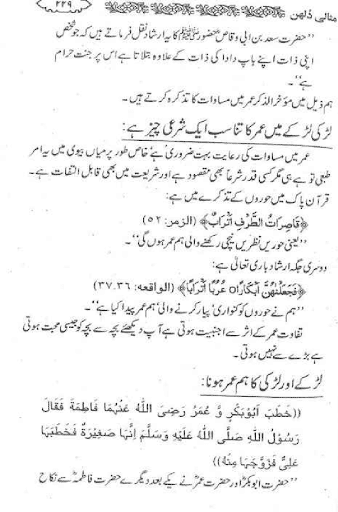 مثالی دُلھن ۲۲۹
’’حضرت سعد بن ابی وقاصؓ حضور ﷺ کا یہ ارشاد نقل فرماتے ہیں کہ جو شخص
اپنی ذات اپنے باپ دادا کی ذات کے علاوہ بتلاتا ہے اس پر جنت حرام
ہے‘‘۔
ہم ذیل میں مؤخر الذکر عمر میں مساوات کا تذکرہ کرتے ہیں۔
لڑکی لڑکے میں عمر کا تناسب ایک شرعی چیز ہے:
عمر میں مساوات کی رعایت بہت ضروری ہے خاص طور پر میاں بیوی میں یہ امر
طبعی تو ہے ہی مگر کسی قدر شرعاً بھی مقصود ہے اور شریعت میں بھی قابل التفات ہے۔
قرآن پاک میں حوروں کے تذکرے میں ہے:
﴿قَاصِرَاتُ الطَّرْفِ أَتْرَابٌ﴾ (الزمر: ۵۲)
’’یعنی حوریں نظریں نیچی رکھنے والی ہم عمر ہوں گی‘‘۔
دوسری جگہ ارشاد باری تعالٰی ہے:
﴿فَجَعَلْنٰهُنَّ أَبْكَارًا۝ عُرُبًا أَتْرَابًا﴾ (الواقعہ: ۳۶، ۳۷)
’’ہم نے حوروں کو کنواری‘ پیار کرنے والی‘ ہم عمر پیدا کیا ہے‘‘۔
تفاوت عمر کے اثر سے اجنبیت ہوتی ہے آپ دیکھئے بچہ سے بچہ کو جیسی محبت ہوتی
ہے بڑے سے نہیں ہوتی۔
لڑکے اور لڑکی کا ہم عمر ہونا:
((خَطَبَ اَبُوْبَكْرٍ وَ عُمَرُ رَضِىَ اللّٰهُ عَنْهُمَا فَاطِمَةَ فَقَالَ
رَسُوْلُ اللّٰهِ صَلَّى اللّٰهُ عَلَيْهِ وَسَلَّمَ اِنَّهَا صَغِيْرَةٌ فَخَطَبَهَا
عَلِىٌّ فَزَوَّجَهَا مِنْهُ))
’’حضرت ابوبکرؓ اور حضرت عمرؓ نے یکے بعد دیگرے حضرت فاطمہؓ سے نکاح